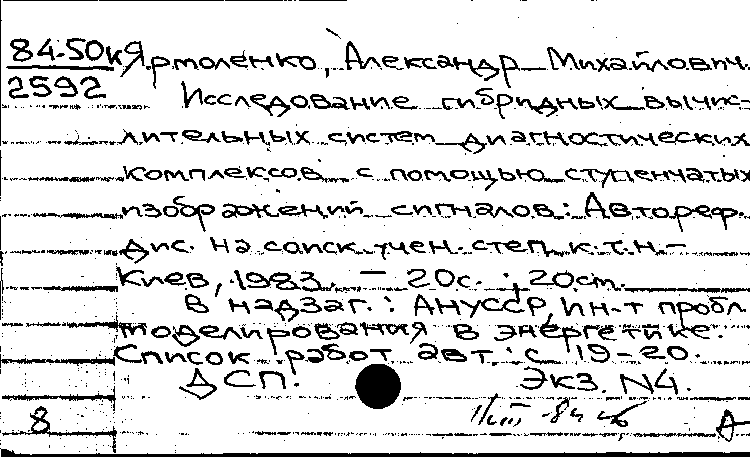 84-50к Ярмоленко, Александр Михайлович.
2592
Исследование гибридных вычис-
лительных систем диагностических
комплексов с помощью ступенчатых
изображений сигналов: Автореф.
дис. на соиск. учен. степ. к.т.н. -
Киев, 1983. - 20с.; 20см.
В надзаг.: АНУССР, Ин-т пробл.
моделирования в энергетике.
Список работ авт.: с 19-20.
ДСП. Экз. N4.
8 А